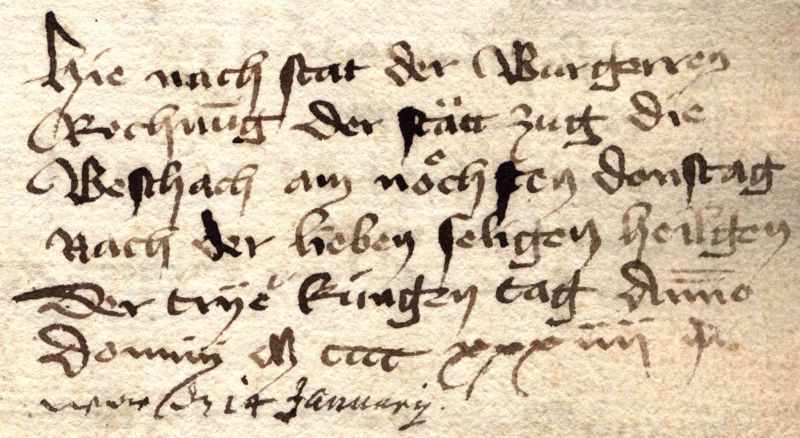 Hie nach stat der Burgerren
Rechnūg der stätt zug die
Beschach am nöchsten donstag
Nach der lieben seligen heiligen
Der tryer küngen tag Anno
domini M cccc xxxiiij
14 January.